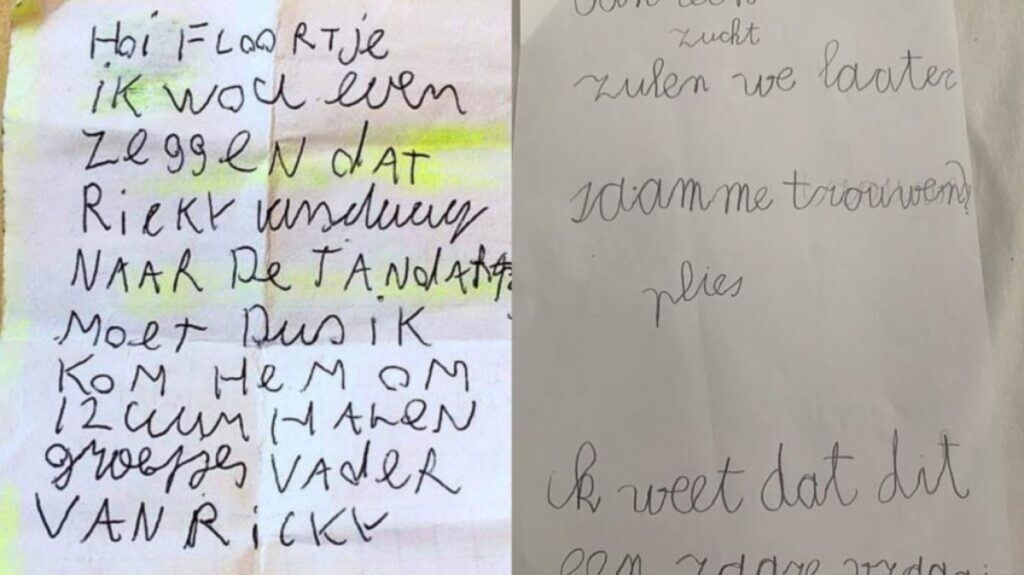 Hoi FLOORTje
ik wou even
zeggeN dAT
RickY vandaag
NAAR De TANdARts
Moet DUS iK
KOM HEM OM
12 uuur HALEN
groetjes VAdER
VAN RickY
zucht
zulen we laater
sdamme trouwem?
plies
ik weet dat dit
een